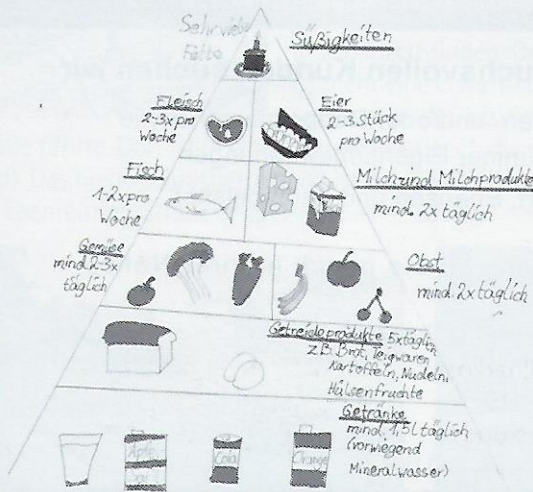 Sehr viele
Fette
Süßigkeiten
Fleisch
2-3x pro
Woche
Eier
2-3 Stück
pro Woche
Fisch
1-2x pro
Woche
Milch und Milchprodukte
mind. 2x täglich
Gemüse
mind. 2-3x
täglich
Obst
mind. 2x täglich
Getreideprodukte 5x täglich
z.B. Brot, Teigwaren,
Kartoffeln, Nudeln,
Hülsenfrüchte
Getränke
mind. 1,5l täglich
(vorwiegend
Mineralwasser)
Cola
Orange